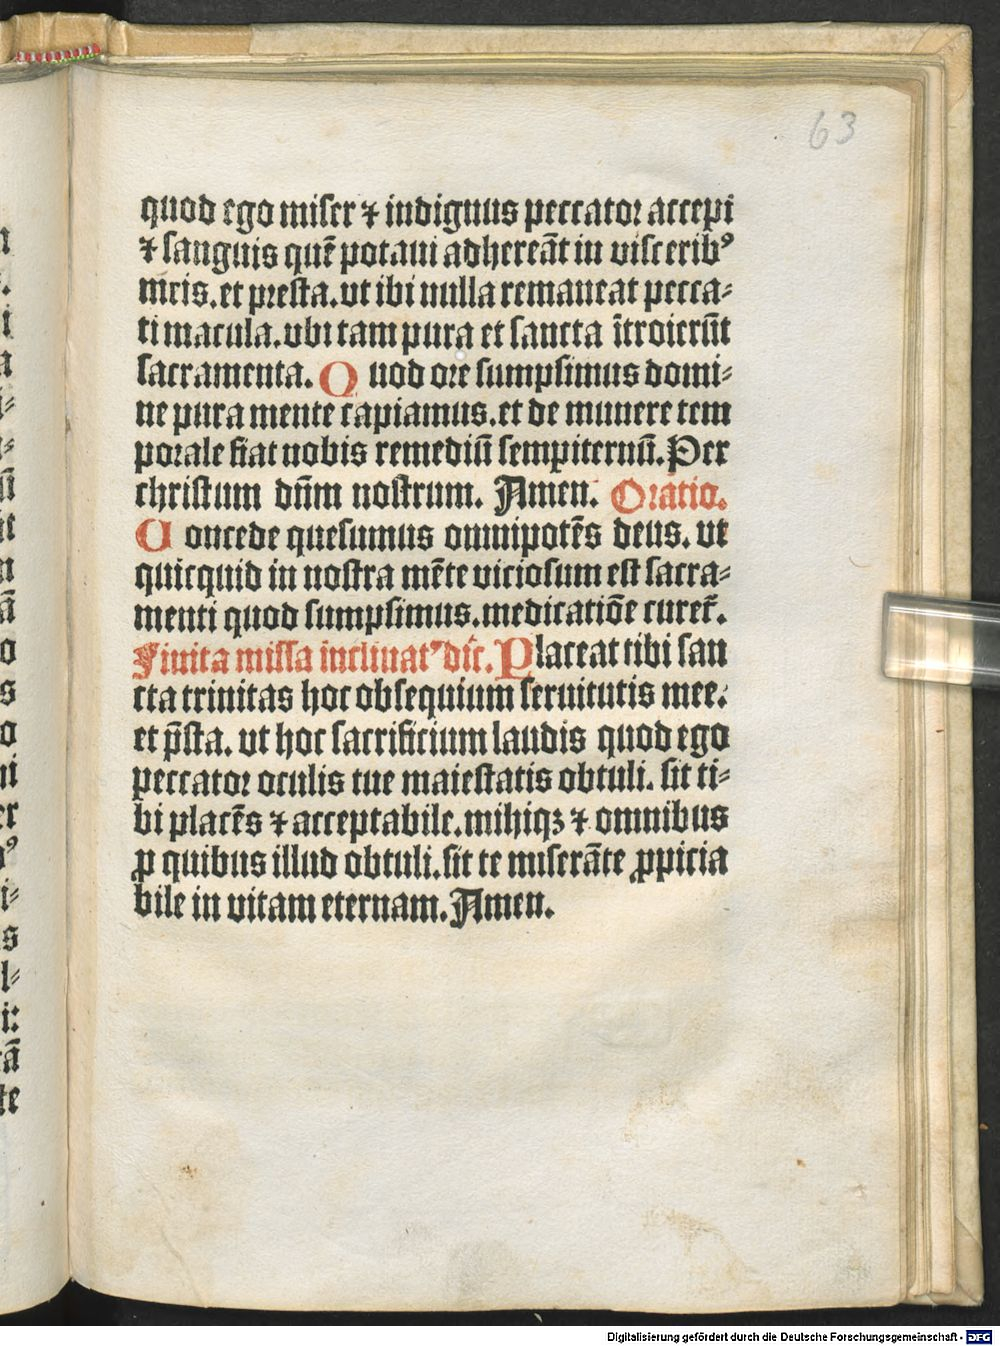 63
quod ego miser ⁊ indignus peccator accepi
⁊ sanguis quē potaui adhereāt in visceribꝰ
meis. et presta. vt ibi nulla remaneat pecca⸗
ti macula. vbi tam pura et sancta ītroierūt
sacramenta. Quod ore sumpsimus domi⸗
ne pura mente capiamus. et de munere tem
porale fiat nobis remediū sempiternū. Per
christum dn̄m nostrum. Amen. Oratio.
Concede quesumus omnipotēs deus. vt
quicquid in nostra mēte viciosum est sacra⸗
menti quod sumpsimus. medicatiōe curet᷑.
Finita missa inclinatꝰ dic̄. Placeat tibi san
cta trinitas hoc obsequium seruitutis mee.
et p̄sta. vt hoc sacrificium laudis quod ego
peccator oculis tue maiestatis obtuli. sit ti⸗
bi placēs ⁊ acceptabile. mihiqꝫ ⁊ omnibus
ꝓ quibus illud obtuli. sit te miserāte ꝓpicia
bile in vitam eternam. Amen.
Digitalisierung gefördert durch die Deutsche Forschungsgemeinschaft - DFG